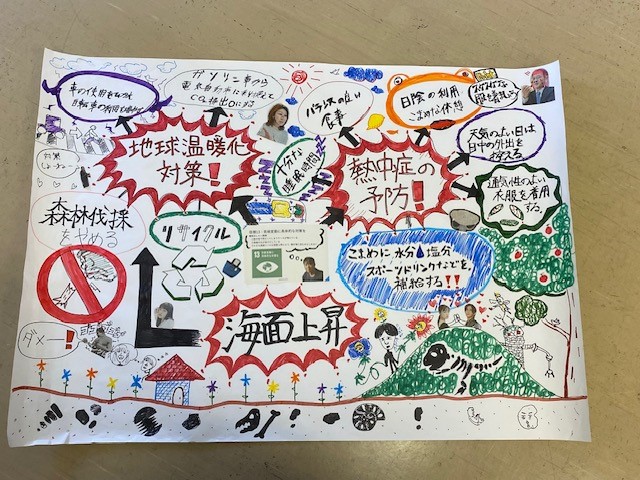 車の使用をひかえ
自転車の利用を増やす
ガソリン車から
電気自動車に利用して
CO₂排出0に対
バランスの良い
食事
日陰の利用
こまめな休憩
地球温暖化
対策!
十分な
睡眠時間
熱中症の
予防!
天気のよい日は
日中の外出を
控える
通気性のよい
衣服を着用
する。
対策
しよーよー
森林伐採
をやめる
リサイクル
13
こまめに水分塩分
スポーツドリンクなどを
補給する!!
海面上昇
ダメー!
!
!